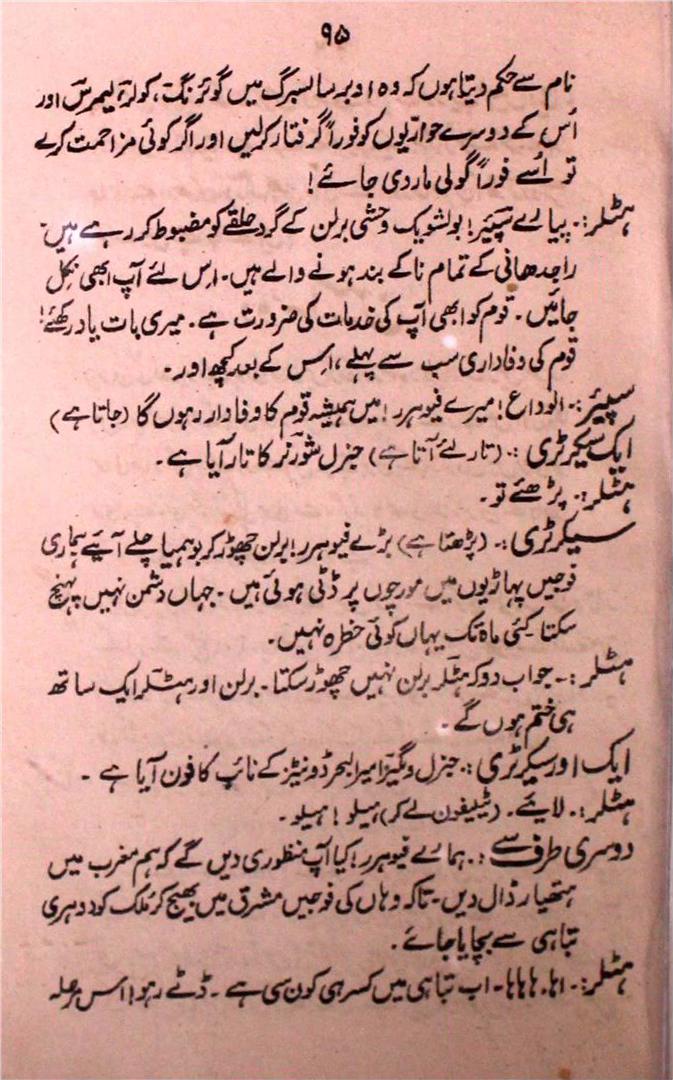 ۹۵
نام سے حکم دیتا ہوں کہ وہ اوبرسالسبرگ میں گوئرنگ، کولر، لیمرس اور
اُس کے دوسرے حواریوں کو فوراً گرفتار کرلیں اور اگر کوئی مزاحمت کرے
تو اُسے فوراً گولی مار دی جائے!
ہٹلر:۔ پیارے سپئیر! بولشویک وحشی برلن کے گرد حلقے کو مضبوط کر رہے ہیں۔
راجدھانی کے تمام ناکے بند ہونے والے ہیں۔ اس لئے آپ ابھی نکل
جائیں۔ قوم کو ابھی آپ کی خدمات کی ضرورت ہے۔ میری بات یاد رکھئے!
قوم کی وفاداری سب سے پہلے، اس کے بعد کچھ اور۔
سپئیر:۔ الوداع! میرے فیوہرر! میں ہمیشہ قوم کا وفادار رہوں گا (جاتا ہے)
ایک سیکرٹری:۔ (تار لئے آتا ہے) جنرل شورنر کا تار آیا ہے۔
ہٹلر:۔ پڑھئے تو۔
سیکرٹری:۔ (پڑھتا ہے) بڑے فیوہرر! برلن چھوڑ کر بوہمیا چلے آیئے ہماری
فوجیں پہاڑیوں میں مورچوں پر ڈٹی ہوئی ہیں۔ جہاں دشمن نہیں پہنچ
سکتا کئی ماہ تک یہاں کوئی خطرہ نہیں۔
ہٹلر:۔ جواب دو کہ ہٹلر برلن نہیں چھوڑ سکتا۔ برلن اور ہٹلر ایک ساتھ
ہی ختم ہوں گے۔
ایک اور سیکرٹری:۔ جنرل ونگیز امیر البحر ڈونیٹز کے نائب کا فون آیا ہے۔
ہٹلر:۔ لایئے۔ (ٹیلیفون لے کر) ہیلو! ہیلو۔
دوسری طرف سے:۔ ہمارے فیوہرر! کیا آپ منظوری دیں گے کہ ہم مغرب میں
ہتھیار ڈال دیں۔ تاکہ وہاں کی فوجیں مشرق میں بھیج کر ملک کو دوہری
تباہی سے بچایا جائے۔
ہٹلر:۔ اہا۔ ہاہاہا۔ اب تباہی میں کسر ہی کون سی ہے۔ ڈٹے رہو! اس مرحلہ